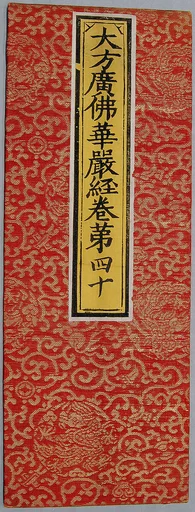 大方廣佛華嚴經卷苐四十